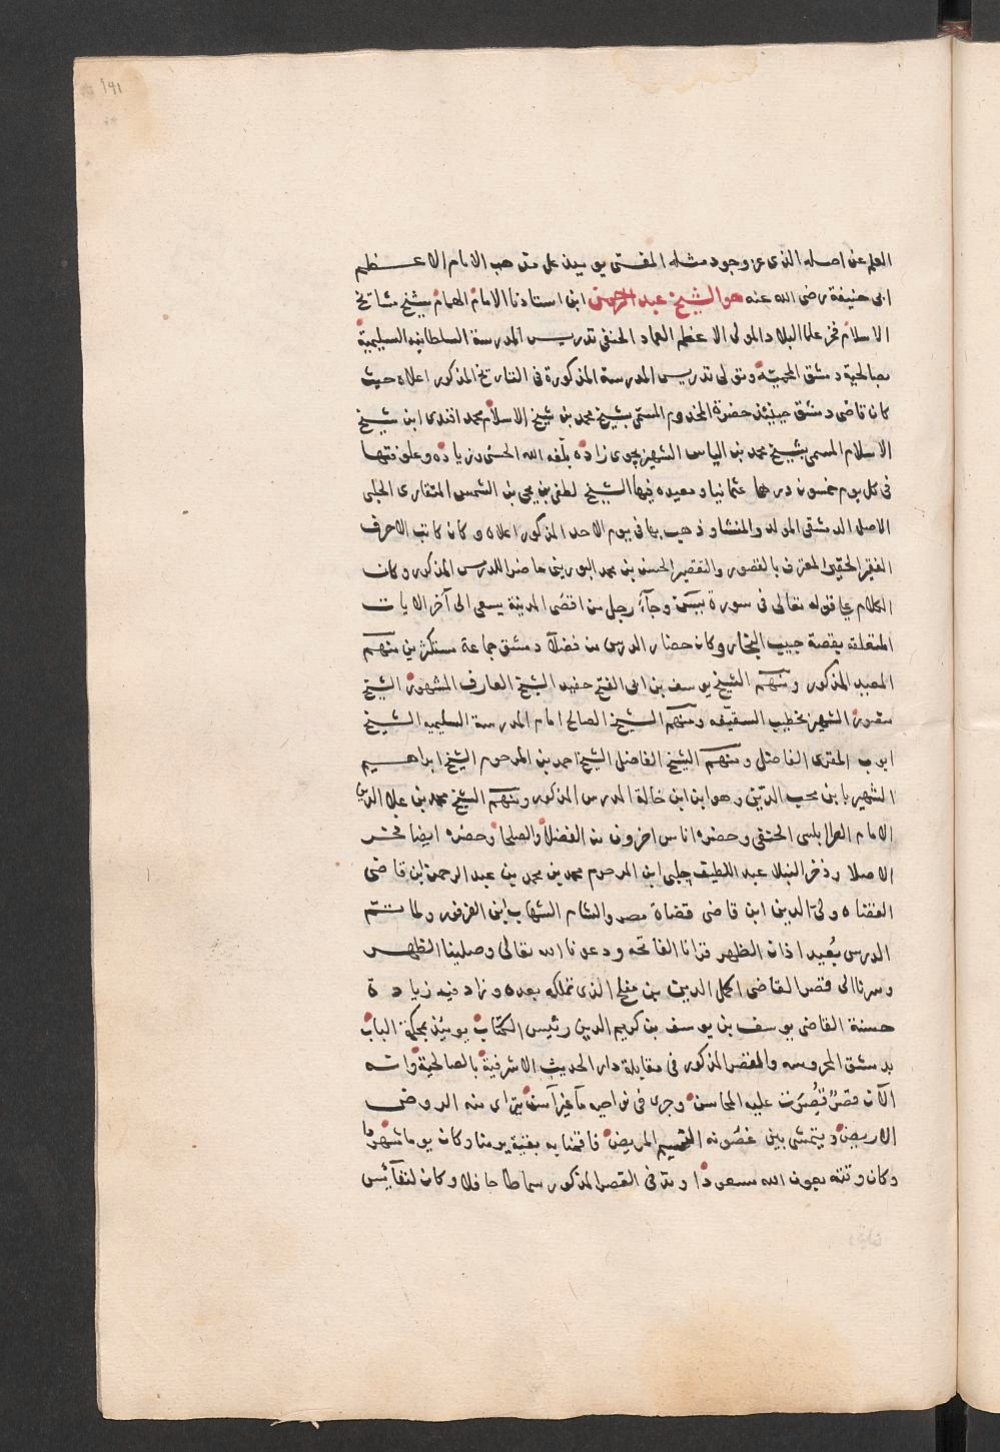 ١٩١
العلم عن اصله الذى عز وجود مثله المفتى يوميذ على مذهب الامام الاعــظم
ابى حنيفة رضى الله عنه هو الشيخ عبد الرحمن ابن استاذنا الامام الهمام شيخ مشائخ
الاسلام فخر علما البلاد المولى الاعظم العماد الحنفى تدريس المدرسة السلطانيه السليمية
بصالحية دمشق المحميّه وتولى تدريس المدرسة المذكورة فى التاريخ المذكور اعلاه حيث
كان قاضى دمشق حينئذ حضرة المخدوم المسمّى بشيخ محمد بن شيخ الاسلام محمد افندى ابن شيخ
الاسلام المسمى بشيخ محمد بن الياس الشهير بچوى زاده بلّغه الله الحسنى وزياده وعلوفتها
فى كل يوم خمسون درهما عثمانيا ومعيده فيها الشيخ لطفى بن يحيى بن الشمس المنقارى الحلبى
الاصل الدمشقى المولد والمنشا وذهب بنا فى يوم الاحد المذكور اعلاه وكان كاتب الاحرف
الفقير الحقير المعترف بالقصور والتقصير الحسن بن محمد البورينى حاضرا للدرس المذكور وكان
الكلام على قوله تعالى فى سورة يسۤ وجآء رجل من اقصَى المدينة يسعى الى آخر الايات
المتعلقه بقصة حبيب النجار وكان حضار الدرس من فضلآء دمشق جماعة مستكثرين منهم
المعيد المذكور ومنهم الشيخ يوسف بن ابى الفتح حفيد الشيخ العارف المشهور الشيخ
منصور الشهير بخطيب السقيفه ومنهم الشيخ الصالح امام المدرسة السليميه الشيخ
ايوب المقرى الفاضل ومنهم الشيخ الفاضل الشيخ احمد بن المرحوم الشيخ ابراهيم
الشهير بابن محب الدّين وهو ابن ابن خالة المدرس المذكور ومنهم الشيخ محمد بن علا الدين
الامام الطرابلسى الحنفى وحضره اناس اخرون من الفضلا والصلحا وحضره ايضا فخر
الاصلا وذخر النبلا عبد اللطيف چلبى ابن المرحوم محمد بن محمد بن عبد الرحمن ابن قاضى
القضاه ولىّ الدين ابن قاضى قضاة مصر والشام الشهاب ابن الفرفور ولما تـتم
الدرس بُعيد اذان الظهر قرانا الفاتحه ودعونا الله تعالى وصلينا الظهر
وسرنا الى قصر القاضى اكمل الدين بن مفلح الذى تملكه بعده وزاد فيه زيادة
حسنة القاضى يوسف بن يوسف بن كريم الدين رئيس الكتاب يوميئذ بمحكمة الباب
بدمشق المحروسه والقصر المذكور فى مقابلة دار الحديث الاشرفية بالصالحية وانه
الآن قصرٌ قُصِرَت عليه المحاسن وجرى فى نواحيه مآ غير آسن يترااى منه الروض
الاريض ويتمشى بين غصونه النسيم المريض فاقمنا به بقية يومنا وكان يوما مشهودا
وكان وقته بعون الله مسعودا ومد فى القصر المذكور سماطا حافلا وكان لنفآئس